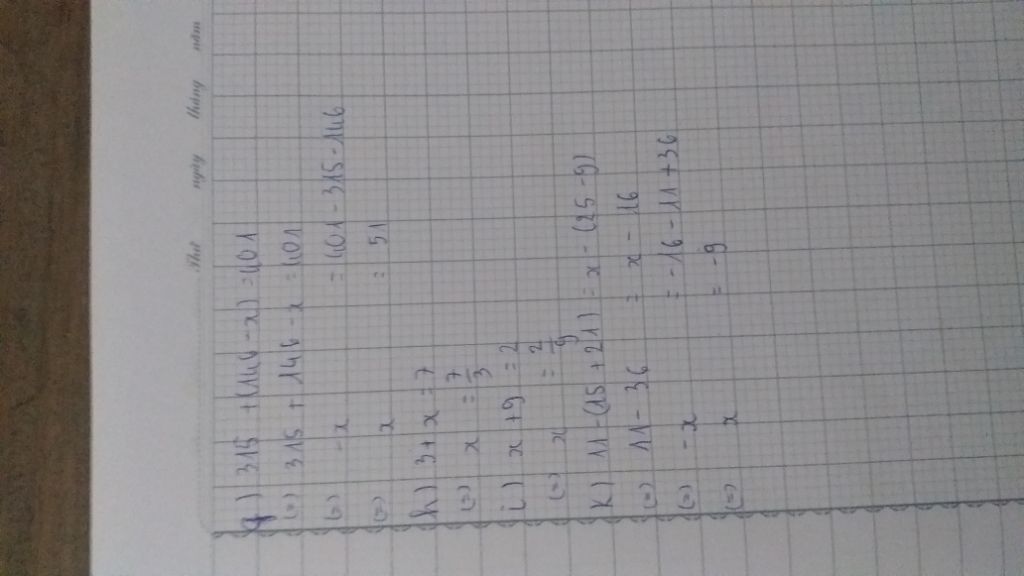 Thứ ngày tháng năm
g) 315 + (146 - x) = 401
(=) 315 + 146 - x = 401
(=) -x = 401 - 315 - 146
(=) x = 51
h) 3 + x = 7
(=) x = 7/3
i) x + 9 = 2
(=) x = 2/9
k) 11 - (15 + 21) = x - (25 - 9)
(=) 11 - 36 = x - 16
(=) -x = -16 - 11 + 36
(=) x = -9